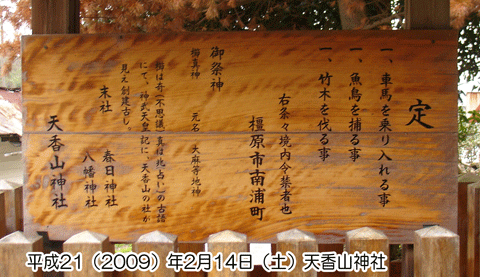 定
一、車馬を乗り入れる事
一、魚鳥を捕る事
一、竹木を伐る事
右条々境内令禁者也
橿原市南浦町
御祭神
櫛真神　元名　大麻等地神
櫛は奇(不思議)真は兆(占い)の古語
にて、神武天皇記に、天香山の社か
見え創建古し。
末社
春日神社
八幡神社
天香山神社
平成21（2009）年2月14日（土）天香山神社